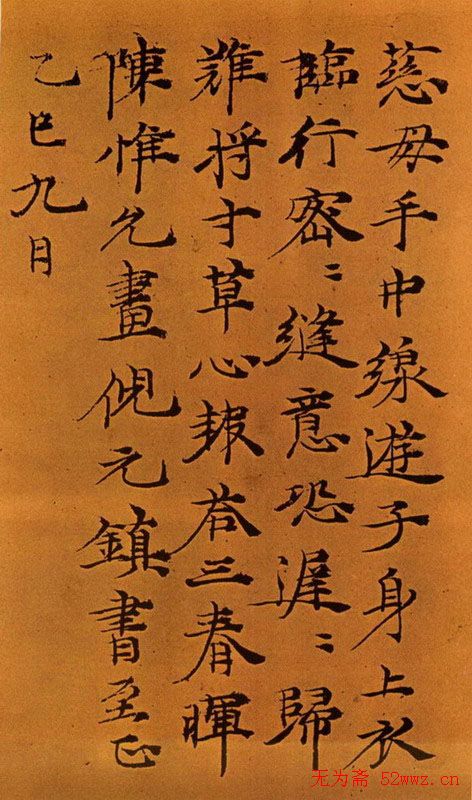 慈母手中線遊子身上衣
臨行密〻縫意恐遲〻歸
難将寸草心報荅三春暉
陳惟允畫倪元鎮書至正
乙巳九月
无为斋 52wwz.cn